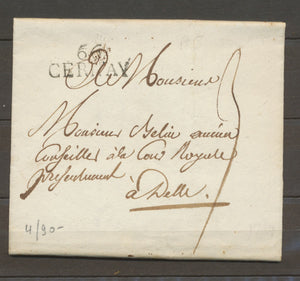 66
CERNAY
A Monsieur
Monsieur Belin ancien
Conseiller à la Cour Royale
présentement
à Delle.
4/90-